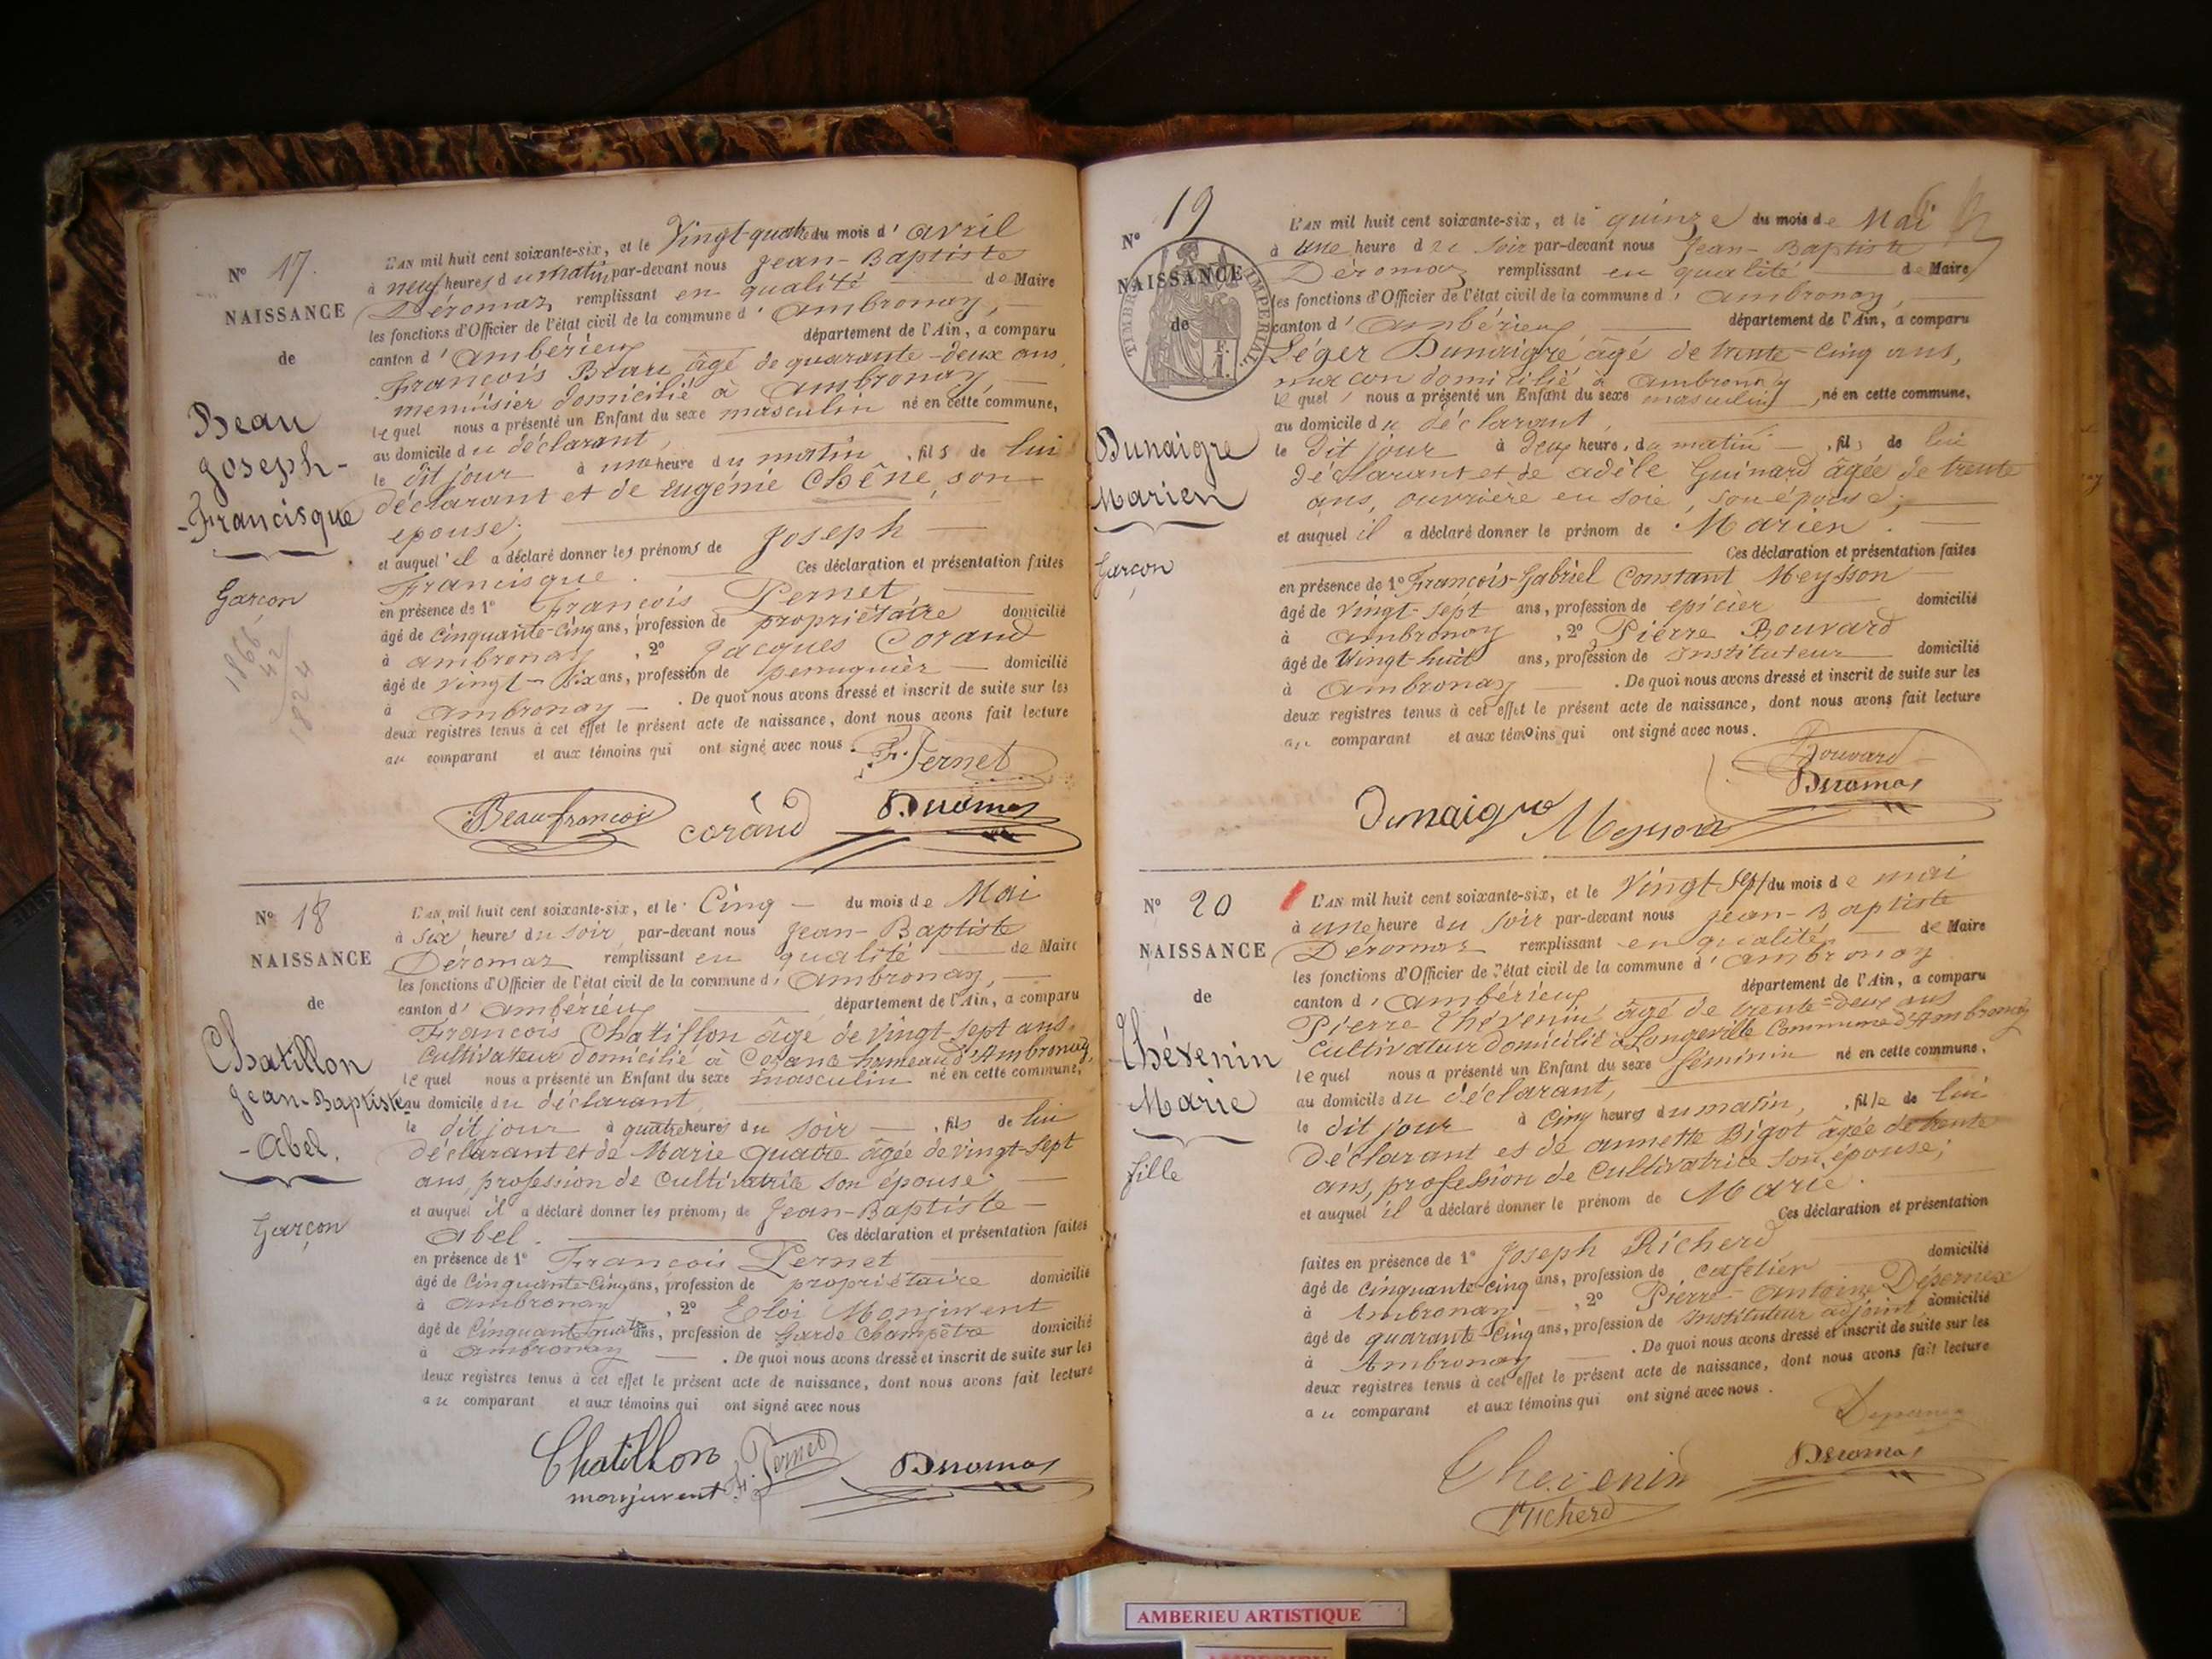 N° 17.
NAISSANCE
de
Beau
Joseph-
-Francisque
Garçon
1866
42
1824
L'AN mil huit cent soixante-six, et le Vingt-quatre du mois d'avril
à neuf heures du matin, par-devant nous Jean-Baptiste
Déromaz remplissant en qualité de Maire
les fonctions d'Officier de l'état civil de la commune d'Ambronay,
canton d'Ambérieux département de l'Ain, a comparu
François Beau âgé de quarante-deux ans,
menuisier domicilié à Ambronay,
lequel nous a présenté un Enfant du sexe masculin né en cette commune,
au domicile du déclarant,
le dit jour à une heure du matin, fils de lui
déclarant et de Eugénie Chêne, son
épouse;
et auquel il a déclaré donner les prénoms de Joseph
Francisque. Ces déclaration et présentation faites
en présence de 1° François Pernet
âgé de Cinquante-cinq ans, profession de propriétaire domicilié
à Ambronay, 2° Jacques Corand
âgé de vingt-six ans, profession de perruquier domicilié
à Ambronay. De quoi nous avons dressé et inscrit de suite sur les
deux registres tenus à cet effet le présent acte de naissance, dont nous avons fait lecture
au comparant et aux témoins qui ont signé avec nous.
F. Pernet
Beau françois corand Deromaz
N° 18
NAISSANCE
de
Chatillon
Jean-Baptiste
-Abel.
Garçon
L'AN mil huit cent soixante-six, et le Cinq du mois de Mai
à six heures du soir par-devant nous Jean-Baptiste
Déromaz remplissant en qualité de Maire
les fonctions d'Officier de l'état civil de la commune d'Ambronay,
canton d'Ambérieux département de l'Ain, a comparu
François Chatillon âgé de vingt-sept ans,
Cultivateur domicilié à hameau d'Ambronay,
lequel nous a présenté un Enfant du sexe masculin né en cette commune,
au domicile du déclarant,
le dit jour à quatre heures du soir, fils de lui
déclarant et de Marie Quatre âgée de vingt-sept
ans, profession de Cultivatrice son épouse;
et auquel il a déclaré donner les prénoms de Jean-Baptiste
Abel. Ces déclaration et présentation faites
en présence de 1° François Pernet
âgé de Cinquante-cinq ans, profession de propriétaire domicilié
à Ambronay, 2° Eloi Monjuvent
âgé de Cinquante-quatre ans, profession de Garde Champêtre domicilié
à Ambronay. De quoi nous avons dressé et inscrit de suite sur les
deux registres tenus à cet effet le présent acte de naissance, dont nous avons fait lecture
au comparant et aux témoins qui ont signé avec nous
Chatillon F. Pernet Deromaz
monjuvent
N° 19
NAISSANCE
de
TIMBRE IMPERIAL
Dunaigre
Marien
Garçon
L'AN mil huit cent soixante-six, et le quinze du mois de Mai
à une heure du soir par-devant nous Jean-Baptiste
Déromaz remplissant en qualité de Maire
les fonctions d'Officier de l'état civil de la commune d'Ambronay,
canton d'Ambérieux département de l'Ain, a comparu
Léger Dunaigre âgé de trente-cinq ans,
maçon domicilié à Ambronay
lequel nous a présenté un Enfant du sexe masculin, né en cette commune,
au domicile du déclarant,
le dit jour à deux heures du matin, fils de lui
déclarant et de Adèle Guinard âgée de trente
ans, ouvrière en soie, son épouse;
et auquel il a déclaré donner le prénom de Marien.
Ces déclaration et présentation faites
en présence de 1° François-Gabriel Constant Meysson
âgé de vingt-sept ans, profession de epicier domicilié
à Ambronay, 2° Pierre Bouvard
âgé de Vingt-huit ans, profession de Instituteur domicilié
à Ambronay. De quoi nous avons dressé et inscrit de suite sur les
deux registres tenus à cet effet le présent acte de naissance, dont nous avons fait lecture
au comparant et aux témoins qui ont signé avec nous.
Bouvard
Dunaigre Meysson Deromaz
N° 20
NAISSANCE
de
Thévenin
Marie
fille
L'AN mil huit cent soixante-six, et le Vingt sept du mois de mai
à une heure du soir par-devant nous Jean-Baptiste
Déromaz remplissant en qualité de Maire
les fonctions d'Officier de l'état civil de la commune d'Ambronay
canton d'Ambérieux département de l'Ain, a comparu
Pierre Thévenin âgé de trente-deux ans
Cultivateur domicilié à Longeville Commune d'Ambronay
lequel nous a présenté un Enfant du sexe féminin né en cette commune,
au domicile du déclarant,
le dit jour à Cinq heures du matin, fille de lui
déclarant et de annette Bigot âgée de trente
ans, profession de Cultivatrice son épouse;
et auquel il a déclaré donner le prénom de Marie.
Ces déclaration et présentation
faites en présence de 1° Joseph Richerd
âgé de cinquante-cinq ans, profession de cafetier domicilié
à Ambronay, 2° Pierre-Antoine Dépernex
âgé de quarante-cinq ans, profession de Instituteur adjoint domicilié
à Ambronay. De quoi nous avons dressé et inscrit de suite sur les
deux registres tenus à cet effet le présent acte de naissance, dont nous avons fait lecture
au comparant et aux témoins qui ont signé avec nous.
Depernex
Thevenin Deromaz
Richerd
AMBERIEU ARTISTIQUE